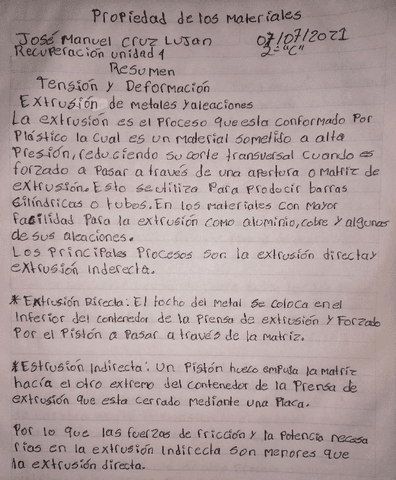 Propiedad de los Materiales
José Manuel Cruz Lujan 07/07/2021
Recuperación unidad 1 2-"C"
Resumen
Tensión y Deformación
Extrusión de metales y aleaciones
La extrusión es el Proceso que esta conformado Por
Plástico la cual es un material sometido a alta
Presión, reduciendo su corte transversal cuando es
forzado a Pasar a través de una apertura o Matriz de
extrusión. Esto se utiliza Para Producir barras
Cilíndricas o tubos. En los materiales con mayor
facilidad Para la extrusión como aluminio, cobre y algunas
de sus aleaciones.
Los Principales Procesos son la extrusión directa y
extrusión inderecta.
* Extrusión Directa: El tocho del metal se coloca en el
Inferior del contenedor de la Prensa de extrusión y Forzado
Por el Pistón a Pasar a través de la matriz.
* Estrusión Indirecta: Un Pistón hueco empuja la matriz
hacía el otro extremo del contenedor de la Prensa de
extrusión que esta cerrado mediante una Placa.
Por lo que las fuerzas de fricción y la Potencia necesa
rias en la extrusión Indirecta son menores que
la extrusión directa.